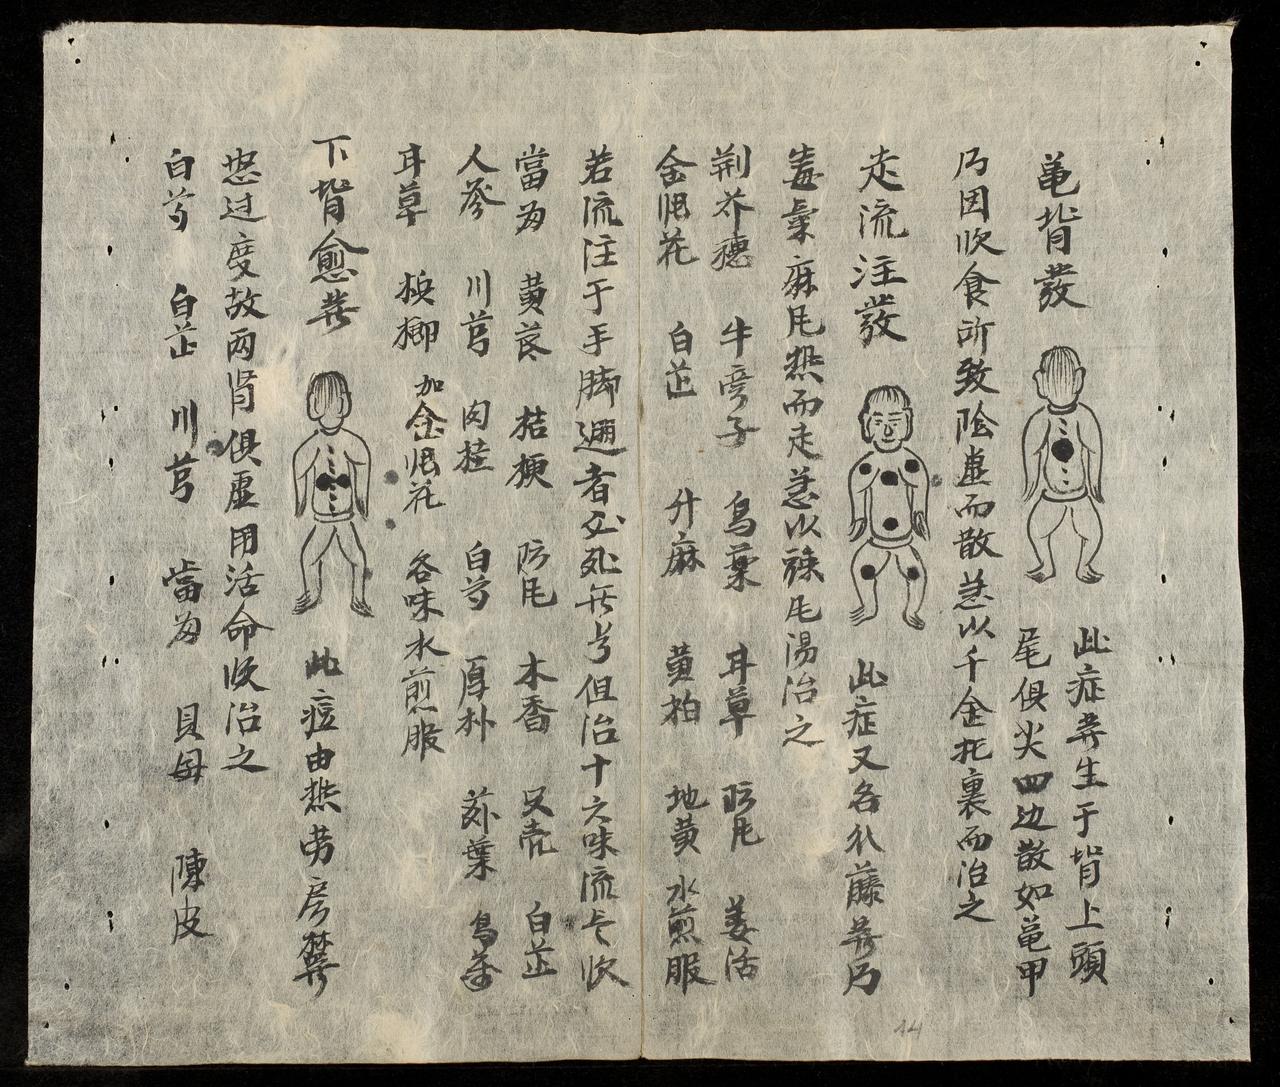 龟背發
此症発生于背上頭
尾俱尖四边散如龟甲
乃因飲食所致陰虚而散急以千金托裏而治之
走流注發
此症又名 藤発乃
毒氣麻风热而走急以 风湯治之
荆芥穗 牛旁子 烏薬 甘草 防风 羗活
金银花 白芷 升麻 黄柏 地黄 水煎服
若流注于手脚遍者必死无 但治十六味流气飲
當 黄芪 桔梗 防风 木香 只壳 白芷
人参 川芎 肉桂 白芍 厚朴 苏葉 烏薬
甘草 槟榔 加金银花 各味水煎服
下背愈発
此症由热劳房
怒过度故两肾俱虚用活命飲治之
白芍 白芷 川芎 當 貝母 陳皮
14